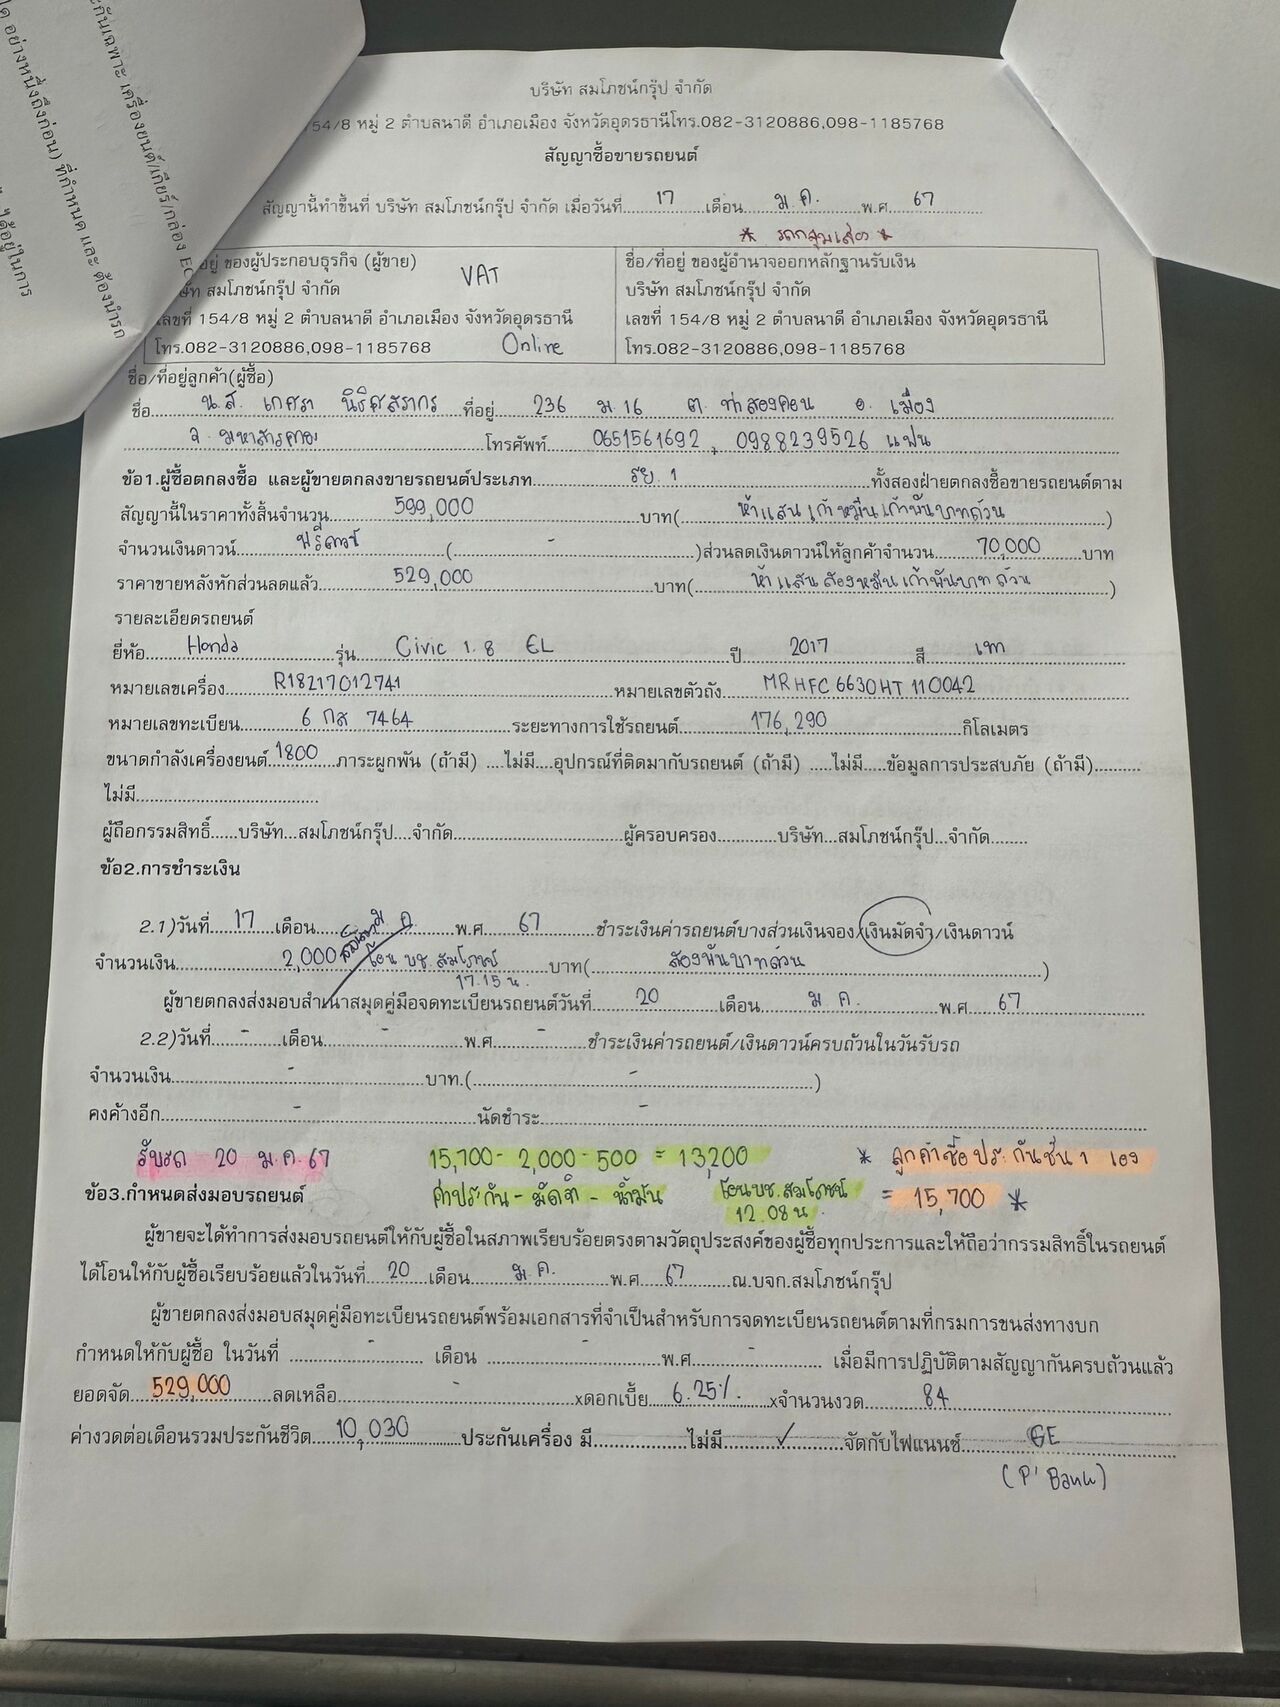 กันเฉพาะ เครื่องยนต์/เกียร์/กล่อง EC
อย่างหนึ่งถึงก่อน) ที่กำหนด และ ต้องนำรถ
ได้อยู่ในการ
บริษัท สมโภชน์กรุ๊ป จำกัด
154/8 หมู่ 2 ตำบลนาดี อำเภอเมือง จังหวัดอุดรธานีโทร.082-3120886,098-1185768
สัญญาซื้อขายรถยนต์
สัญญานี้ทำขึ้นที่ บริษัท สมโภชน์กรุ๊ป จำกัด เมื่อวันที่ 17 เดือน ม.ค. พ.ศ 67
* รถกลุ่มเสี่ยง *
อยู่ ของผู้ประกอบธุรกิจ (ผู้ขาย) VAT
ษัท สมโภชน์กรุ๊ป จำกัด
เลขที่ 154/8 หมู่ 2 ตำบลนาดี อำเภอเมือง จังหวัดอุดรธานี
โทร.082-3120886,098-1185768 Online
ชื่อ/ที่อยู่ ของผู้อำนาจออกหลักฐานรับเงิน
บริษัท สมโภชน์กรุ๊ป จำกัด
เลขที่ 154/8 หมู่ 2 ตำบลนาดี อำเภอเมือง จังหวัดอุดรธานี
โทร.082-3120886,098-1185768
ชื่อ/ที่อยู่ลูกค้า(ผู้ซื้อ)
ชื่อ น.ส. เกศรา ที่อยู่ 236 ม.16 ต. ท่าสองคอน อ. เมือง
จ. มหาสารคาม โทรศัพท์ 0651561692, 0988239526 แฟน
ข้อ1.ผู้ซื้อตกลงซื้อ และผู้ขายตกลงขายรถยนต์ประเภท รย. 1 ทั้งสองฝ่ายตกลงซื้อขายรถยนต์ตาม
สัญญานี้ในราคาทั้งสิ้นจำนวน 599,000 บาท( ห้าแสนเก้าหมื่นเก้าพันบาทถ้วน )
จำนวนเงินดาวน์ ฟรีดาวน์ ( - )ส่วนลดเงินดาวน์ให้ลูกค้าจำนวน 70,000 บาท
ราคาขายหลังหักส่วนลดแล้ว 529,000 บาท( ห้าแสนสองหมื่นเก้าพันบาทถ้วน )
รายละเอียดรถยนต์
ยี่ห้อ Honda รุ่น Civic 1.8 EL ปี 2017 สี เทา
หมายเลขเครื่อง R18Z17012741 หมายเลขตัวถัง MRHFC6630HT110042
หมายเลขทะเบียน 6 กส 7464 ระยะทางการใช้รถยนต์ 176,290 กิโลเมตร
ขนาดกำลังเครื่องยนต์ 1800 ภาระผูกพัน (ถ้ามี) ....ไม่มี....อุปกรณ์ที่ติดมากับรถยนต์ (ถ้ามี) .....ไม่มี.....ข้อมูลการประสบภัย (ถ้ามี)..........
ไม่มี
ผู้ถือกรรมสิทธิ์......บริษัท...สมโภชน์กรุ๊ป....จำกัด ผู้ครอบครอง บริษัท...สมโภชน์กรุ๊ป...จำกัด
ข้อ2.การชำระเงิน
2.1)วันที่ 17 เดือน ม ค. พ.ศ 67 ชำระเงินค่ารถยนต์บางส่วนเงินจอง/เงินมัดจำ/เงินดาวน์
จำนวนเงิน 2,000 โอน บช. สมโภชน์ บาท( สองพันบาทถ้วน )
17.15 น.
ผู้ขายตกลงส่งมอบสำเนาสมุดคู่มือจดทะเบียนรถยนต์วันที่ 20 เดือน ม.ค. พ.ศ 67
2.2)วันที่ - เดือน - พ.ศ - ชำระเงินค่ารถยนต์/เงินดาวน์ครบถ้วนในวันรับรถ
จำนวนเงิน - บาท.( - )
คงค้างอีก - นัดชำระ -
รับรถ 20 ม.ค. 67 15,700 - 2,000 - 500 = 13,200 * ลูกค้าซื้อประกันชั้น 1 เอง
ข้อ3.กำหนดส่งมอบรถยนต์ ค่าประกัน - มัดจำ - น้ำมัน โอน บช. สมโภชน์ = 15,700 *
12.08 น.
ผู้ขายจะได้ทำการส่งมอบรถยนต์ให้กับผู้ซื้อในสภาพเรียบร้อยตรงตามวัตถุประสงค์ของผู้ซื้อทุกประการและให้ถือว่ากรรมสิทธิ์ในรถยนต์
ได้โอนให้กับผู้ซื้อเรียบร้อยแล้วในวันที่ 20 เดือน ม.ค. พ.ศ 67 ณ.บจก.สมโภชน์กรุ๊ป
ผู้ขายตกลงส่งมอบสมุดคู่มือทะเบียนรถยนต์พร้อมเอกสารที่จำเป็นสำหรับการจดทะเบียนรถยนต์ตามที่กรมการขนส่งทางบก
กำหนดให้กับผู้ซื้อ ในวันที่ - เดือน - พ.ศ - เมื่อมีการปฏิบัติตามสัญญากันครบถ้วนแล้ว
ยอดจัด 529,000 ลดเหลือ - xดอกเบี้ย 6.25% xจำนวนงวด 84
ค่างวดต่อเดือนรวมประกันชีวิต 10,030 ประกันเครื่อง มี ไม่มี ✓ จัดกับไฟแนนซ์ GE
(P' Bank)